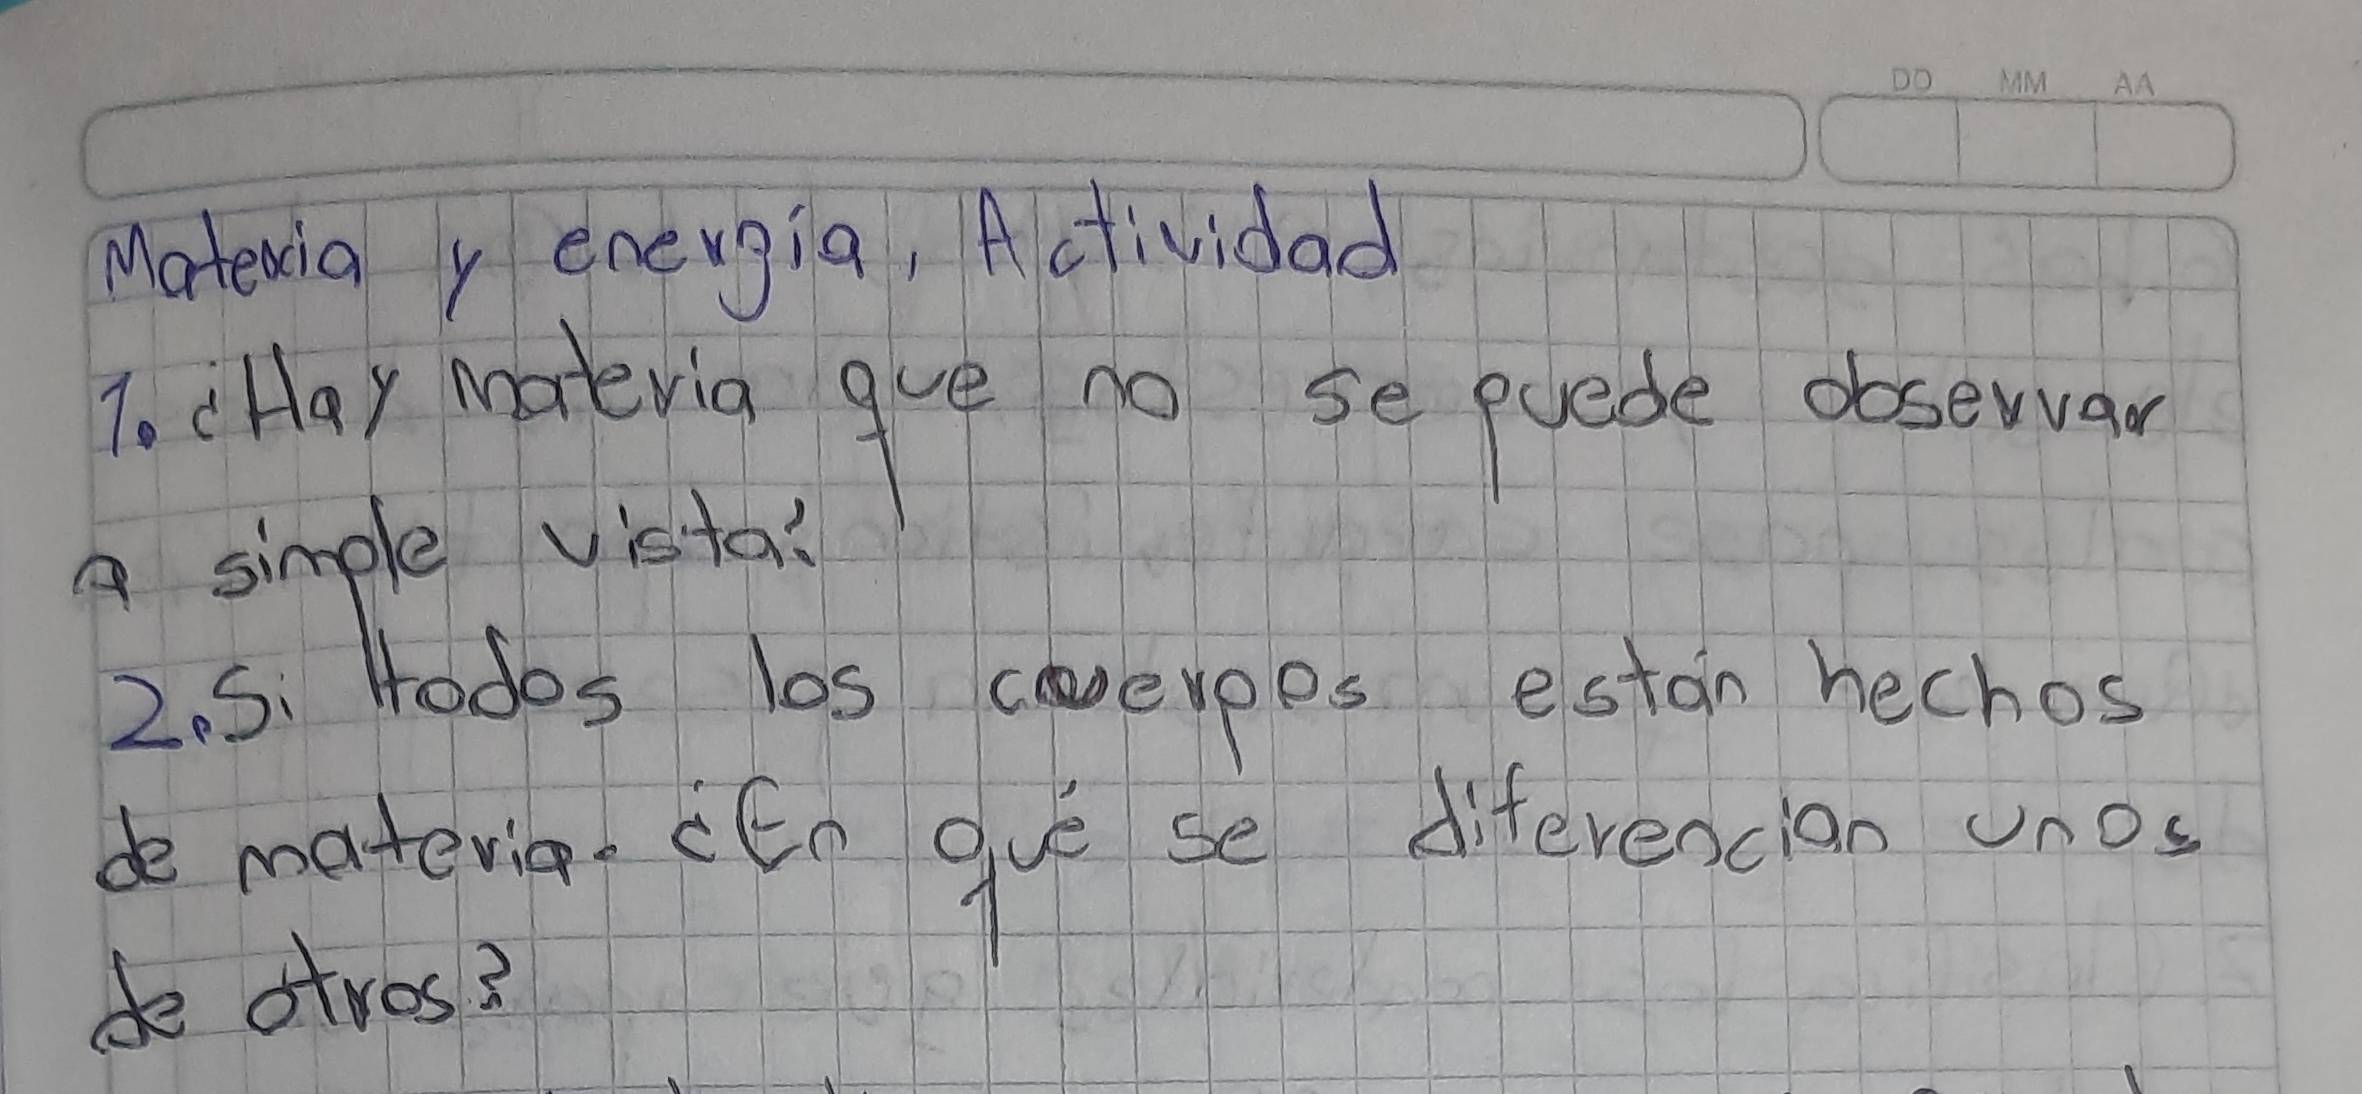 DD MM AA
Materia y energía, Actividad
1. ¿Hay materia que no se puede observar
a simple vista?
2. Si todos los cuerpos están hechos
de materia. ¿En qué se diferencian unos
de otros?